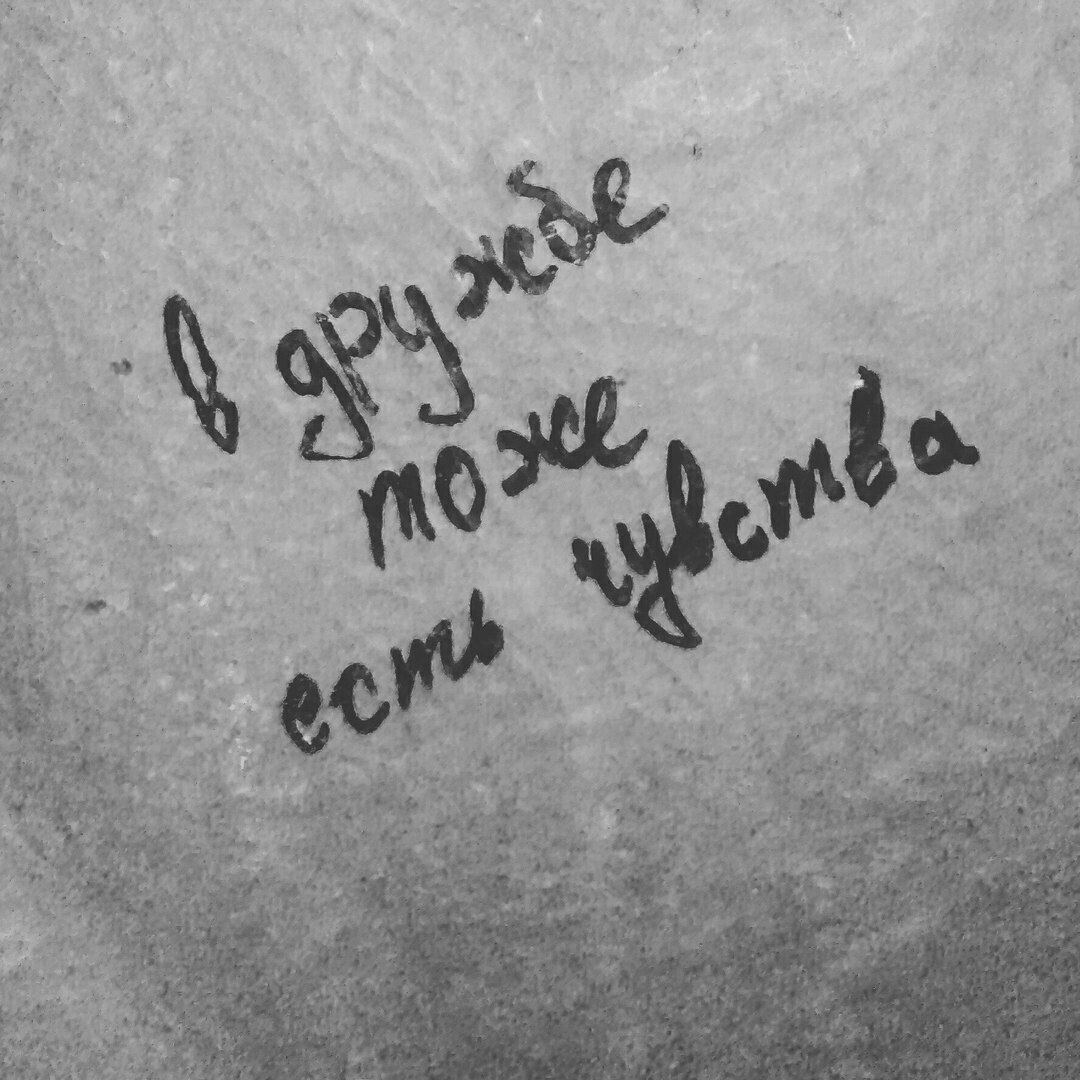 в дружбе
тоже
есть чувства